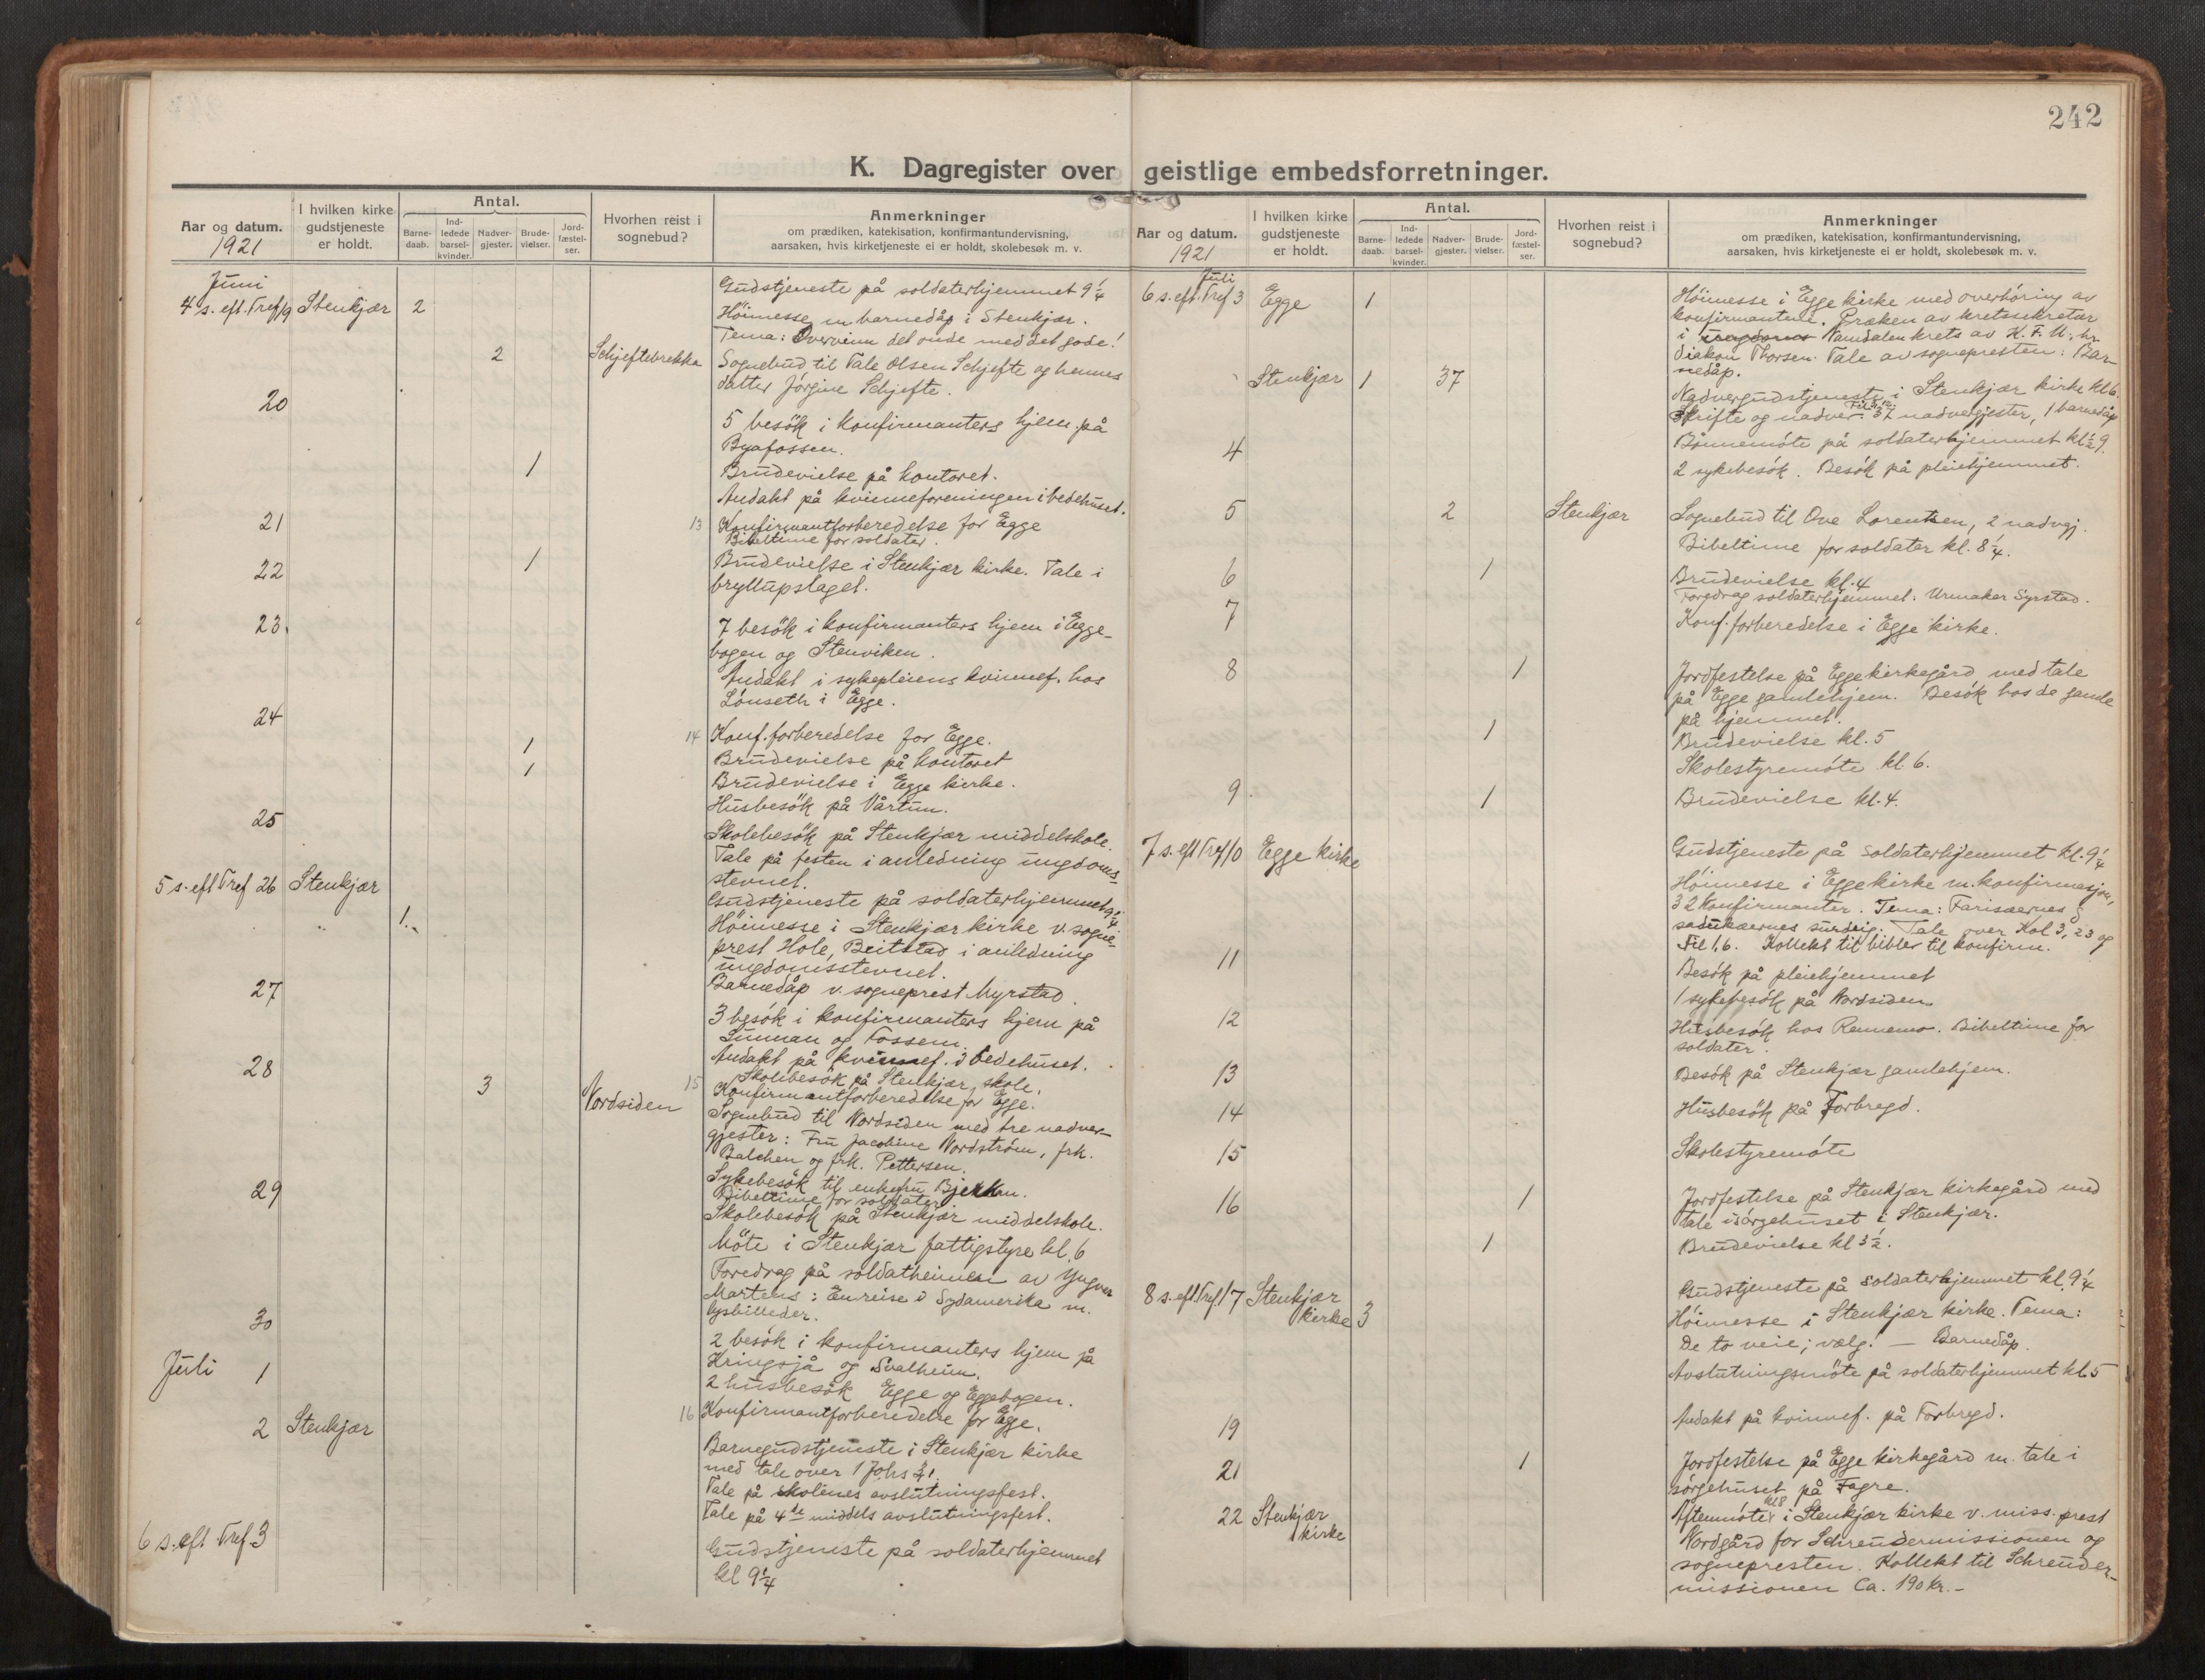 242
K. Dagregister over geistlige embedsforretninger.
Aar og datum.
1921
I hvilken kirke gudstjeneste er holdt.
Antal.
Barne-daab.
Ind-ledede barsel-kvinder.
Nadver-gjester.
Brude-vielser.
Jord-fæstel-ser.
Hvorhen reist i sognebud?
Anmerkninger
om prædiken, katekisation, konfirmantundervisning,
aarsaken, hvis kirketjeneste ei er holdt, skolebesøk m. v.
Juni
Gudstjeneste på soldaterhjemmet 9 1/4
4 s. eft. Tref 19 Stenkjær 2
Höimesse m barnedåp i Stenkjær.
Tema: Overvinn det onde med det gode!
2 Schjeftebrekka
Sognebud til Tale Olsen Schjefte og hennes
datter Jörgine Schjefte.
20
5 besök i konfirmanters hjem på
Byafossen.
1 Brudevielse på kontoret.
Andakt på kvinneforeningen i bedehuset.
21 13 Konfirmantforberedelse for Egge
Bibeltime for soldater.
22 1 Brudevielse i Stenkjær kirke. Tale i
bryllupslaget.
23. 7 besök i konfirmanters hjem i Egge-
bogen og Stenviken.
Andakt i sykepleiens kvinnef. hos
Lönseth i Egge.
24 14 Konf. forberedelse for Egge.
1 Brudevielse på kontoret
1 Brudevielse i Egge kirke.
Husbesök på Vårtun.
25 Skolebesök på Stenkjær middelskole.
Tale på festen i anledning ungdoms-
stevnet.
5 s. eft Tref 26 Stenkjær
Gudstjeneste på soldaterhjemmet 9 1/4
1. Höimesse i Stenkjær kirke v. sogne-
prest Hole, Beitstad i anledning
ungdomsstevnet.
Barnedåp v. sogneprest Myrstad.
27 3 besök i konfirmanters hjem på
Sunnan og Fossem.
Andakt på kvinnef. i bedehuset.
28 Skolebesök på Stenkjær skole.
15 Konfirmantforberedelse for Egge.
3 Nordsiden Sognebud til Nordsiden med tre nadver-
gjester: Fru Jacobine Nordström, frk.
Balchen og frk. Pettersen.
Sykebesök til enkefru Bjerkan.
Bibeltime for soldater
29 Skolebesök på Stenkjær middelskole.
Möte i Stenkjær fattigstyre kl. 6
Foredrag på soldatheimen av Yngvar
Martens: En reise i Sydamerika m.
lysbilleder.
30 2 besök i konfirmanters hjem på
Kringsjå og Svalheim.
Juli 1 2 husbesök Egge og Eggebogen.
16 Konfirmantforberedelse for Egge.
2 Stenkjær Barnegudstjeneste i Stenkjær kirke
med tale over 1 Johs
Tale på skolenes avslutningsfest.
Tale på 4de middels avslutningsfest.
6 s. eft Tref 3 Gudstjeneste på soldaterhjemmet
kl 9 1/4
Aar og datum.
1921
I hvilken kirke gudstjeneste er holdt.
Antal.
Barne-daab.
Ind-ledede barsel-kvinder.
Nadver-gjester.
Brude-vielser.
Jord-fæstel-ser.
Hvorhen reist i sognebud?
Anmerkninger
om prædiken, katekisation, konfirmantundervisning,
aarsaken, hvis kirketjeneste ei er holdt, skolebesøk m. v.
Juli
6 s. eft. Tref 3 Egge 1 Höimesse i Egge kirke med overhöring av
konfirmantene. Præken av kretssekretær
i Namdalen krets av K. F. U., hr.
diakon Thorsen. Tale av sognepresten: Bar-
nedåp.
Stenkjær 1 37 Nadvergudstjeneste i Stenkjær kirke kl 6.
Skrifte og nadver 37 nadvergjester, 1 barnedåp
Bönnemöte på soldaterhjemmet kl 1/2 9.
4 2 sykebesök. Besök på pleiehjemmet.
5 2 Stenkjær Sognebud til Ove Lorentsen, 2 nadvgj.
Bibeltime for soldater kl. 8 1/4.
6 1 Brudevielse kl. 4
Foredrag soldaterhjemmet: Urmaker Syrstad.
7 Konf. forberedelse i Egge kirke.
8 1 Jordfestelse på Egge kirkegård med tale
på Egge gamlehjem. Besök hos de gamle
på hjemmet.
1 Brudevielse kl. 5
Skolestyremöte kl 6.
9 1 Brudevielse kl. 4.
7 s. eft Tref 10 Egge kirke Gudstjeneste på soldaterhjemmet kl. 9 1/4
Höimesse i Egge kirke m. konfirmasjon,
32 konfirmanter. Tema: Farisæernes &
sadukæernes surdeig. Tale over Kol 3, 23 og
Fil 1.6. Kollekt til bibler til konfirm.
11 Besök på pleiehjemmet
1 sykebesök på Nordsiden.
12 Husbesök hos Rennemo. Bibeltime for
soldater.
13 Besök på Stenkjær gamlehjem.
14 Husbesök på Forbregd.
15 Skolestyremöte
16 1 Jordfestelse på Stenkjær kirkegård med
tale i sörgehuset i Stenkjær.
1 Brudevielse kl 3 1/2.
8 s. eft. Tref. 17 Stenkjær kirke 3 Gudstjeneste på soldaterhjemmet kl. 9 1/4
Höimesse i Stenkjær kirke. Tema:
De to veie; vælg! — Barnedåp.
Avslutningsmöte på soldaterhjemmet kl. 5
19 Andakt på kvinnef. på Forbregd.
21 1 Jordfestelse på Egge kirkegård m. tale i
sörgehuset på Fagre.
22 Stenkjær kirke Aftenmöte kl 8 i Stenkjær kirke v. miss. prest
Nordgård for Schreudermissionen og
sognepresten. Kollekt til Schreuder-
missionen Ca. 190 kr. -